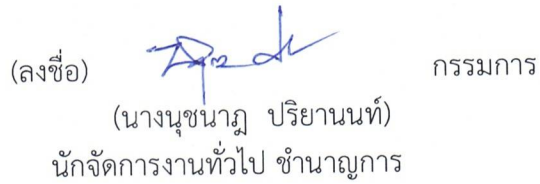 (ลงชื่อ) กรรมการ
(นางนุชนาฎ ปริยานนท์)
นักจัดการงานทั่วไป ชำนาญการ